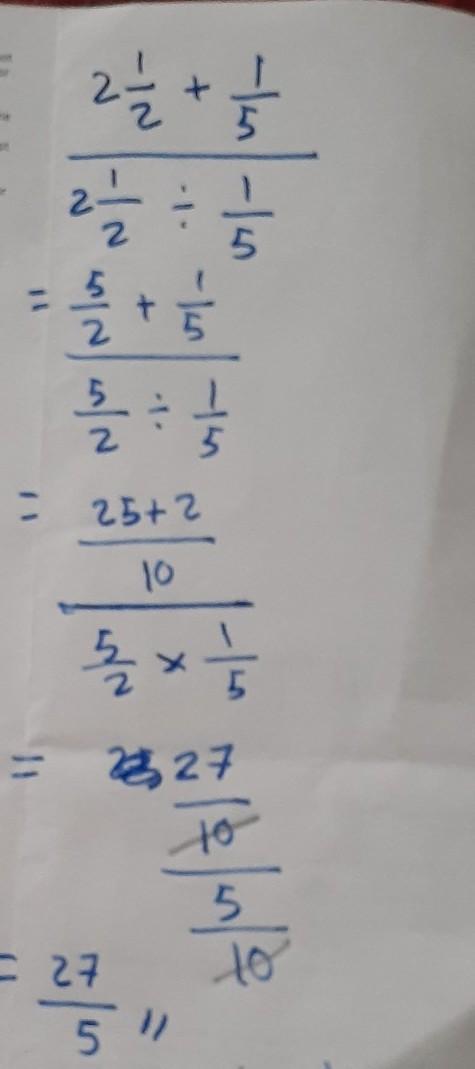 2 1/2 + 1/5
2 1/2 ÷ 1/5
= 5/2 + 1/5
5/2 ÷ 1/5
= 25+2
10
5/2 × 1/5
= 27
10
5
10
= 27/5 〃